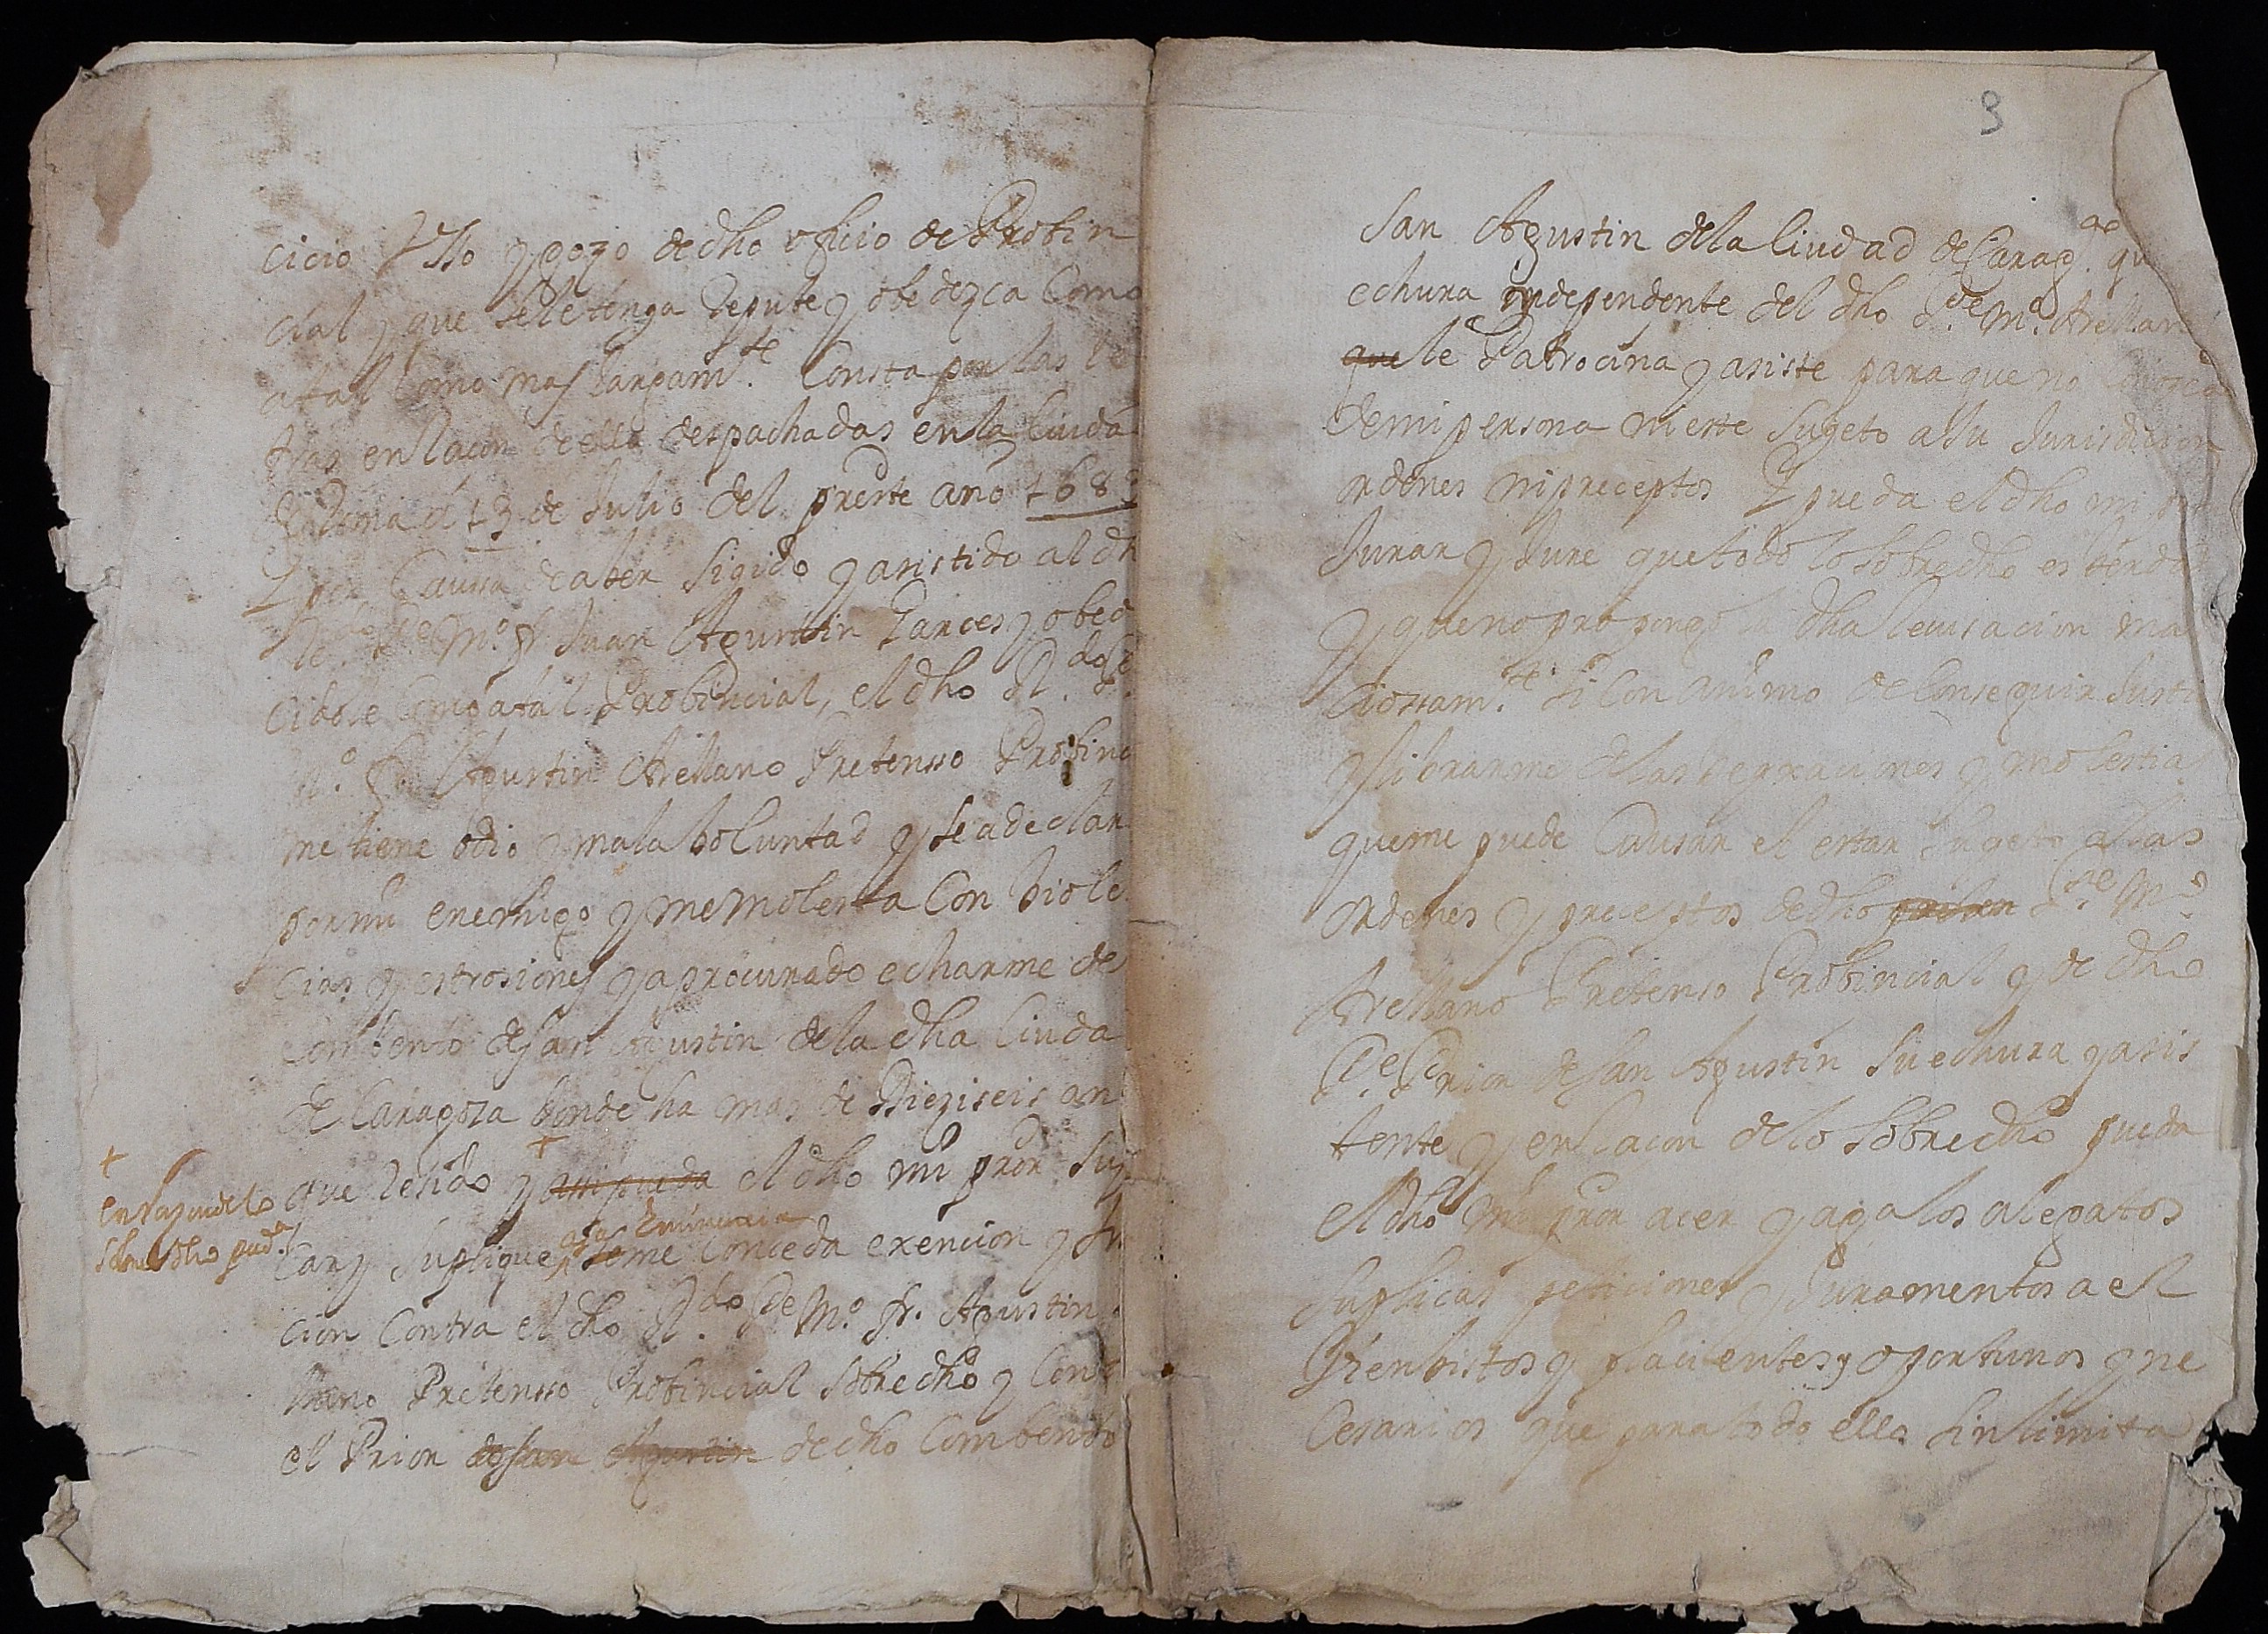 cicio Usso y gozo de dho oficio de Probin
cial y que se le tenga Repute y obedezca Como
atal Como mas largam.te Consta por las le
tras en Raçon de ello despachadas en la Ciuda
de Roma á 13 de Julio del preste año 168
Y por Caussa de aber sigido y asistido al dh
R.do P.e M.o fr Juan Agustin Garces y obed
cidole Como atal Probincial, el dho R.do P.e
M.o fr. Agustin Arellano Pretensso Probinc
me tiene odio y mala boluntad y se a declar
por mi enemigo y me molesta Con biole
cias y estrosiones y a procurado echarme del
Combento de San Agustin de la dha Ciuda
de Caragoza donde ha mas de Dieziseis an
que resido y assi pueda el dho mi pror Sup
+
en raçon de lo
sobredho pueda
car y suplique a su Eminencia se me Conceda exencion y
cion Contra el dho R.do P.e M.o fr. Agustin
llano Pretensso Probincial sobredho y Cont
el Prior de San Agustin de dho Combento
3
San Agustin de la Ciudad de Carag.ça qu
echura independente del dho P.e M.o Arellan
que le Patrocina y asiste para que no Conozca
de mi persona ni este sugeto a su Jurisdicion
ordenes ni preceptos Y pueda el dho mi
Jurar y Jure que todo lo sobredho es berdad
y que no propongo dha Recusacion ma
ciossam.te si Con animo de Conseguir Justi
y librarme de las bexaciones y molestias
que me puede Causar el estar sugeto a las
ordenes y preceptos de dho P.e M.o
Arellano Pretenso Probincial y de dho
P.e Prior de San Agustin su echura y asis
tente y en Racon de lo sobredho pueda
el dho mi pror acer y aga los alegatos
suplicas peticiones y Juramentos a el
bien bistos y placientes y oportunos y ne
Cesarios que para todo ello sin limita